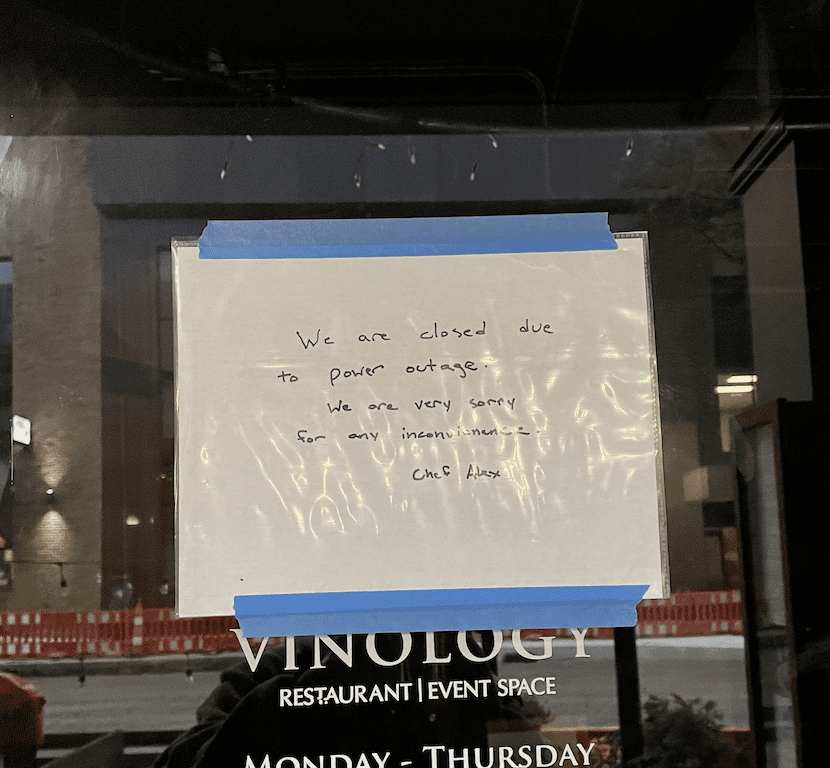 We are closed due
to power outage.
We are very sorry
for any inconvienence.
Chef Alex
VINOLOGY
RESTAURANT | EVENT SPACE
MONDAY - THURSDAY